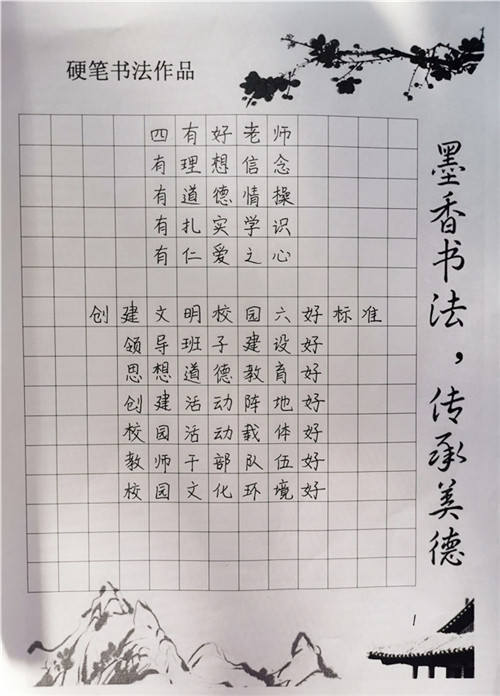 硬笔书法作品
四有好老师
有理想信念
有道德情操
有扎实学识
有仁爱之心
创建文明校园六好标准
领导班子建设好
思想道德教育好
创建活动阵地好
校园活动载体好
教师干部队伍好
校园文化环境好
墨香书法，传承美德
1